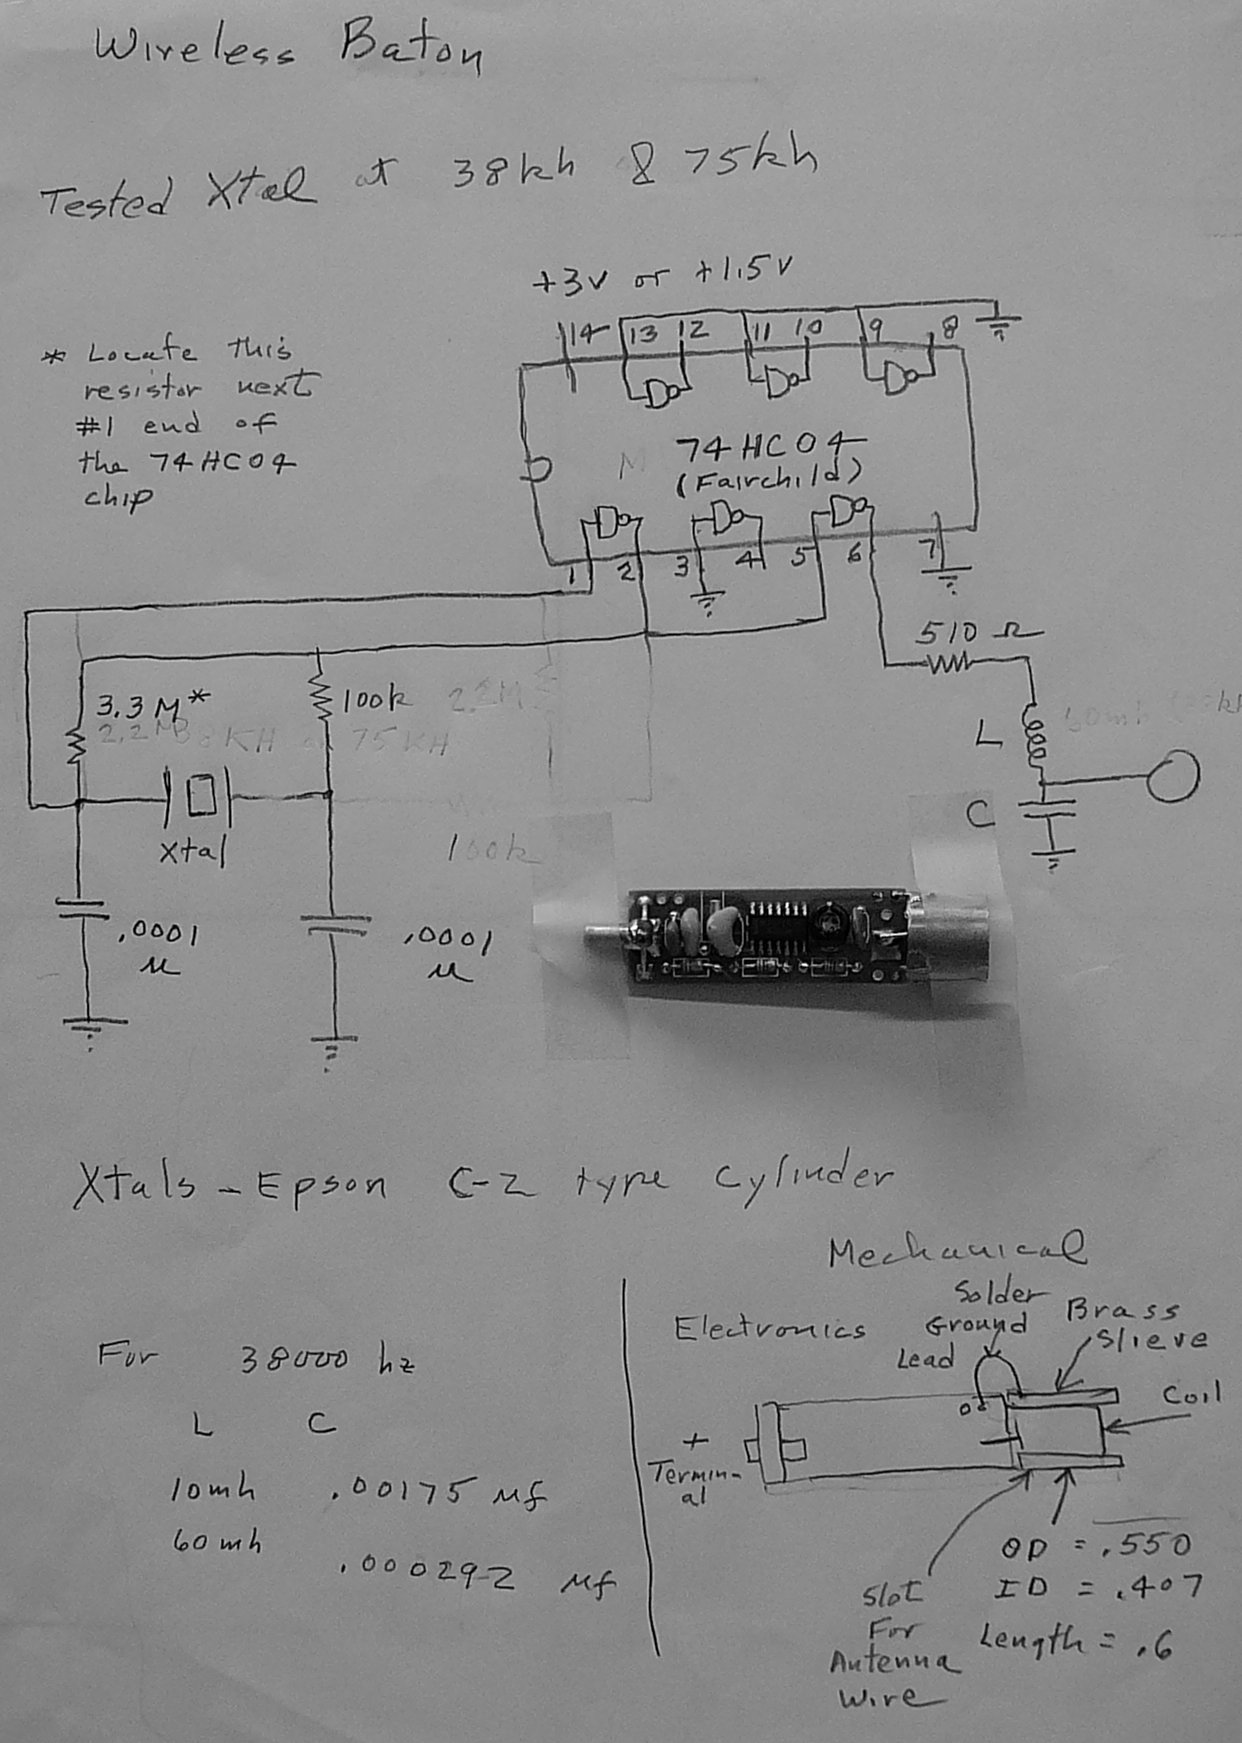 Wireless Baton
Tested Xtal at 38kh & 75kh
+3v or +1.5v
* Locate this
resistor next
#1 end of
the 74HC04
chip
14 13 12 11 10 9 8
74HC04
(Fairchild)
M
1 2 3 4 5 6 7
510 Ω
3.3M*
100k
2.2M
2.2M
38KH or 75KH
L
50mh
C
xtal
100k
.0001
u
.0001
u
Xtals - Epson C-2 type cylinder
Mechanical
Electronics
Solder
Ground
Lead
Brass
Slieve
Coil
+
Termin-
al
For 38000 hz
L C
10mh .00175 Mf
60mh
.000292 Mf
OD = .550
ID = .407
Length = .6
Slot
For
Antenna
Wire